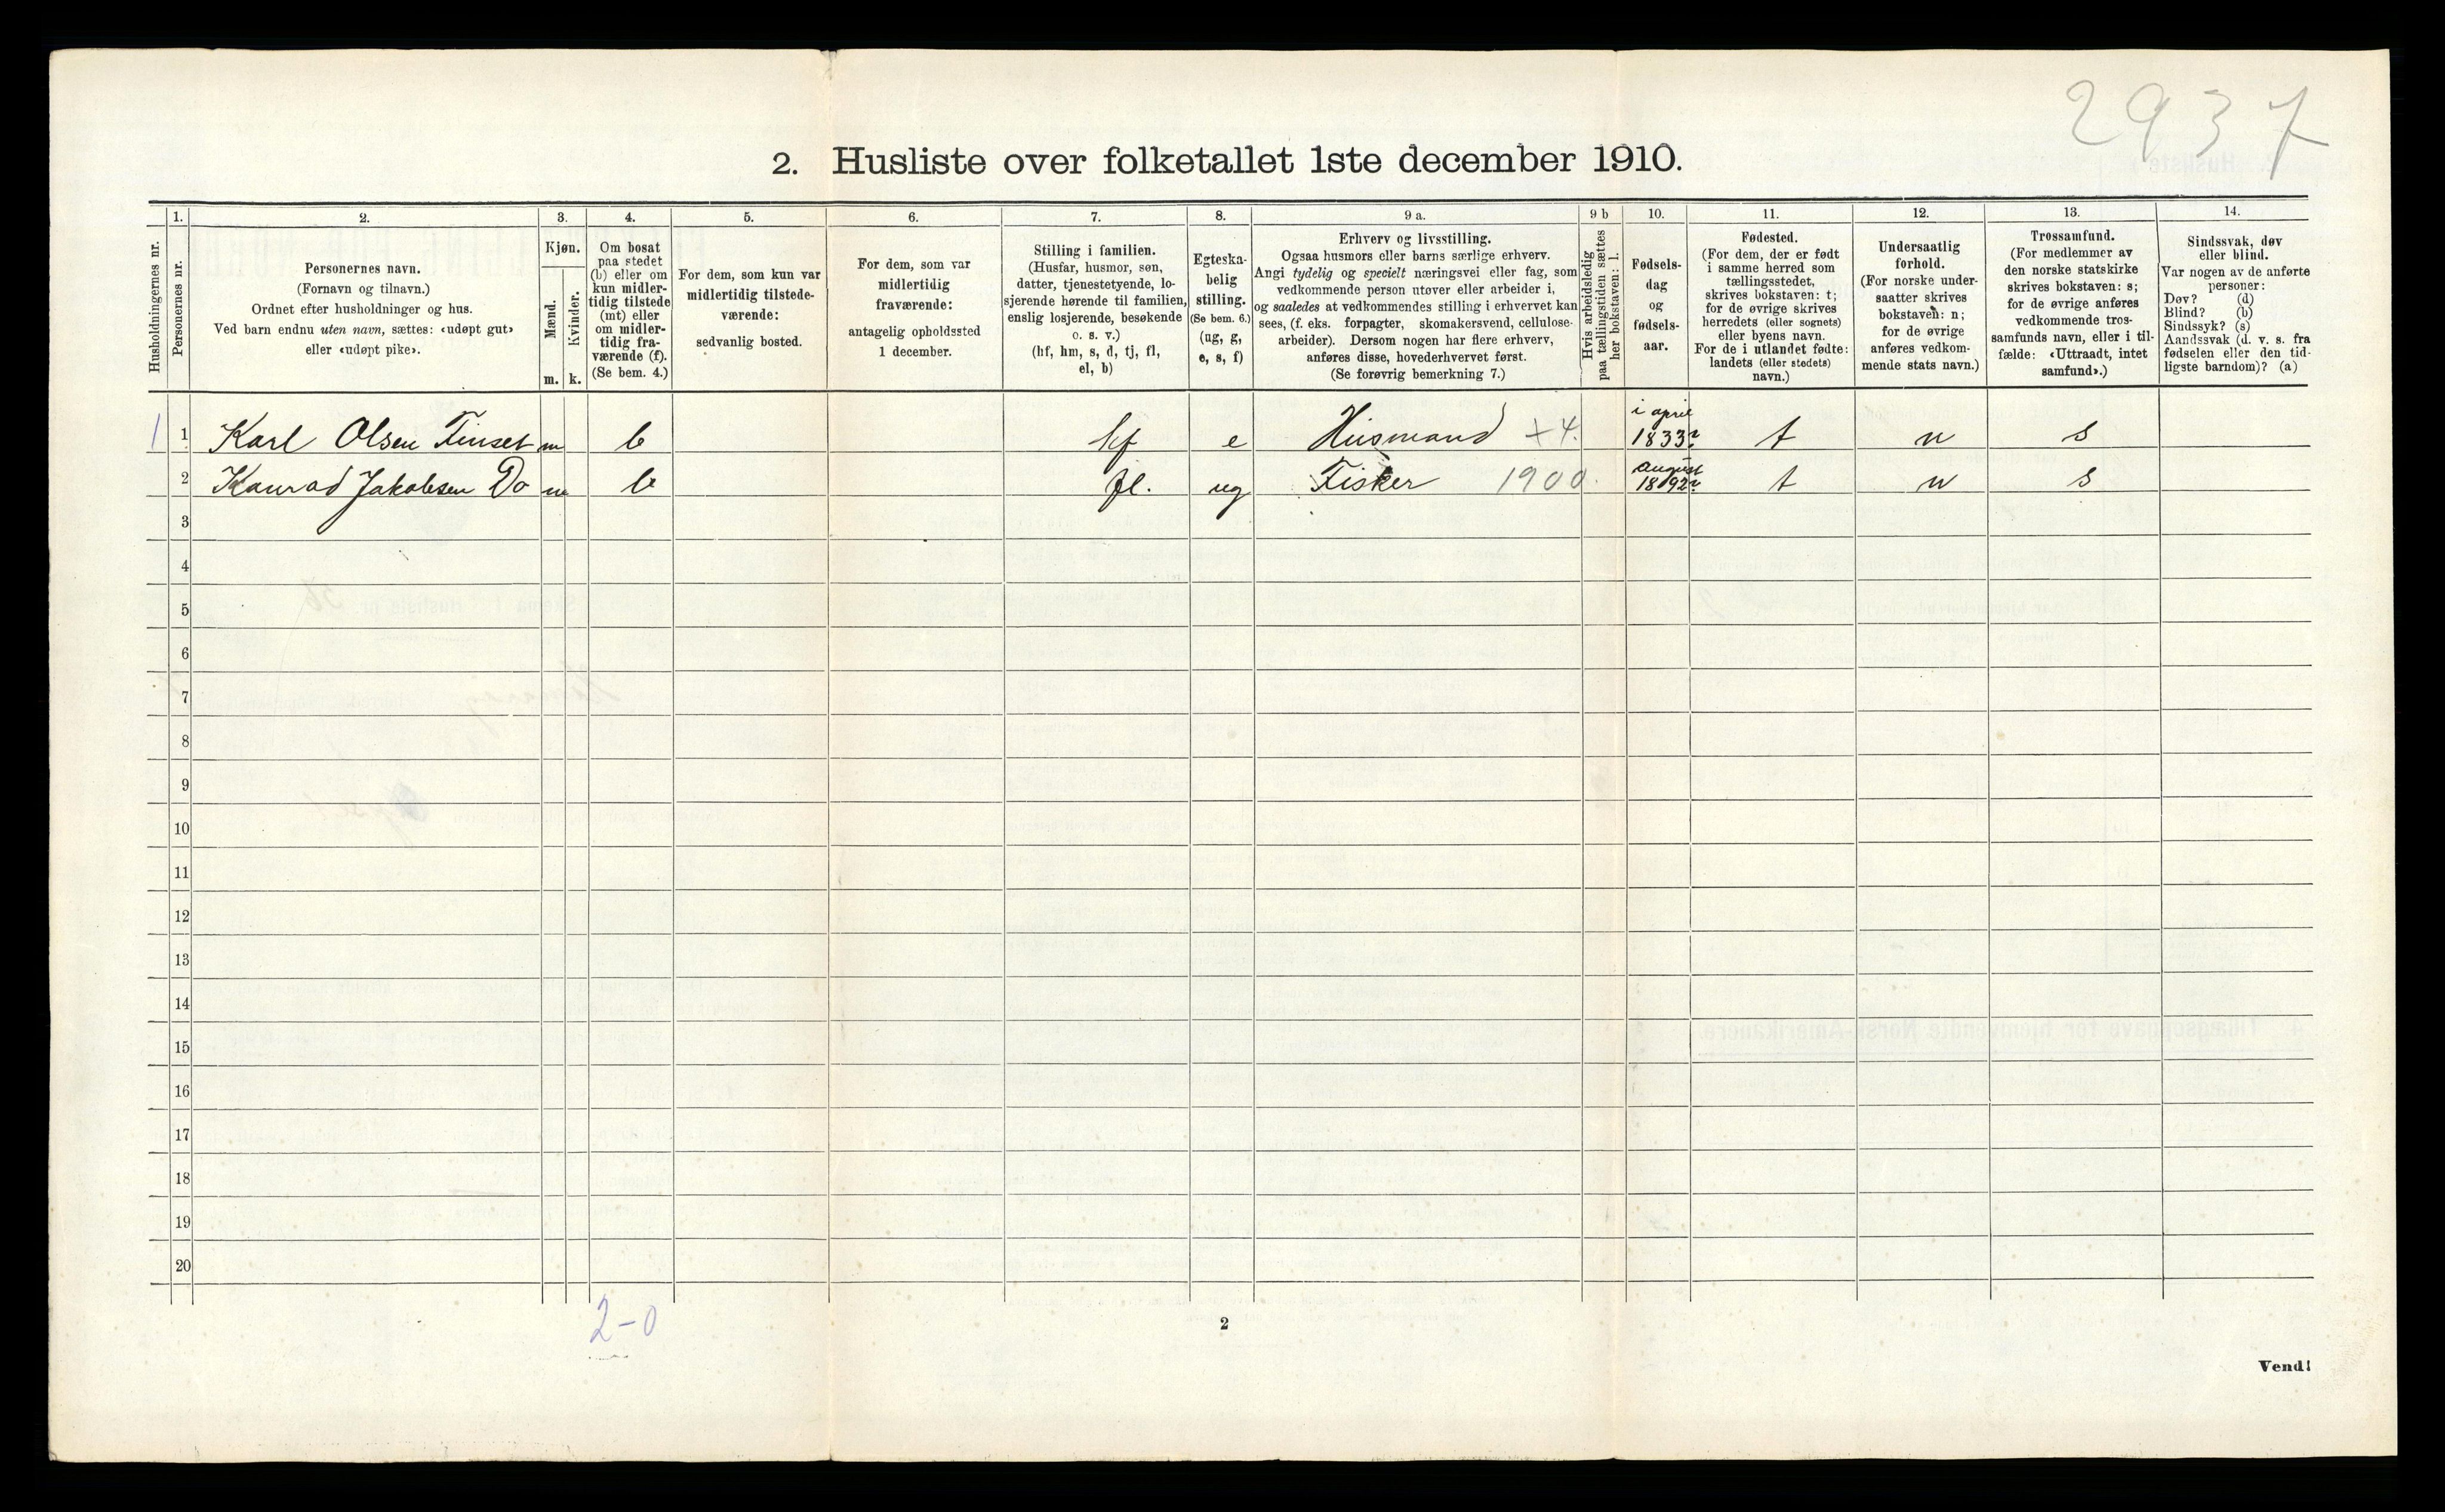 2937
2. Husliste over folketallet 1ste december 1910.
Husholdningernes nr.
1.
Personernes nr.
2.
Personernes navn.
(Fornavn og tilnavn.)
Ordnet efter husholdninger og hus.
Ved barn endnu uten navn, sættes: «udøpt gut»
eller «udøpt pike».
3.
Kjøn.
Mænd.
Kvinder.
m. k.
4.
Om bosat
paa stedet
(b) eller om
kun midler-
tidig tilstede
(mt) eller
om midler-
tidig fra-
værende (f).
(Se bem. 4.)
5.
For dem, som kun var
midlertidig tilstede-
værende:
sedvanlig bosted.
6.
For dem, som var
midlertidig
fraværende:
antagelig opholdssted
1 december.
7.
Stilling i familien.
(Husfar, husmor, søn,
datter, tjenestetyende, lo-
sjerende hørende til familien,
enslig losjerende, besøkende
o. s. v.)
(hf, hm, s, d, tj, fl,
el, b)
8.
Egteska-
belig
stilling.
(Se bem. 6.)
(ug, g,
e, s, f)
9 a.
Erhverv og livsstilling.
Ogsaa husmors eller barns særlige erhverv.
Angi tydelig og specielt næringsvei eller fag, som
vedkommende person utøver eller arbeider i,
og saaledes at vedkommendes stilling i erhvervet kan
sees, (f. eks. forpagter, skomakersvend, cellulose-
arbeider). Dersom nogen har flere erhverv,
anføres disse, hovederhvervet først.
(Se forøvrig bemerkning 7.)
9 b
Hvis arbeidsledig
paa tællingstiden sættes
her bokstaven: l.
10.
Fødsels-
dag
og
fødsels-
aar.
11.
Fødested.
(For dem, der er født
i samme herred som
tællingsstedet,
skrives bokstaven: t;
for de øvrige skrives
herredets (eller sognets)
eller byens navn.
For de i utlandet fødte:
landets (eller stedets)
navn.)
12.
Undersaatlig
forhold.
(For norske under-
saatter skrives
bokstaven: n;
for de øvrige
anføres vedkom-
mende stats navn.)
13.
Trossamfund.
(For medlemmer av
den norske statskirke
skrives bokstaven: s;
for de øvrige anføres
vedkommende tros-
samfunds navn, eller i til-
fælde: «Uttraadt, intet
samfund».)
14.
Sindssvak, døv
eller blind.
Var nogen av de anførte
personer:
Døv? (d)
Blind? (b)
Sindssyk? (s)
Aandssvak (d. v. s. fra
fødselen eller den tid-
ligste barndom)? (a)
i april
1 1 Karl Olsen Tinset m b hf e Husmand +4. 1833? t n s
august
2 Konrad Jakobsen Do m b fl. ug Fisker 1900. 1892? t n s
3
4
5
6
7
8
9
10
11
12
13
14
15
16
17
18
19
20
2-0
2
Vend!